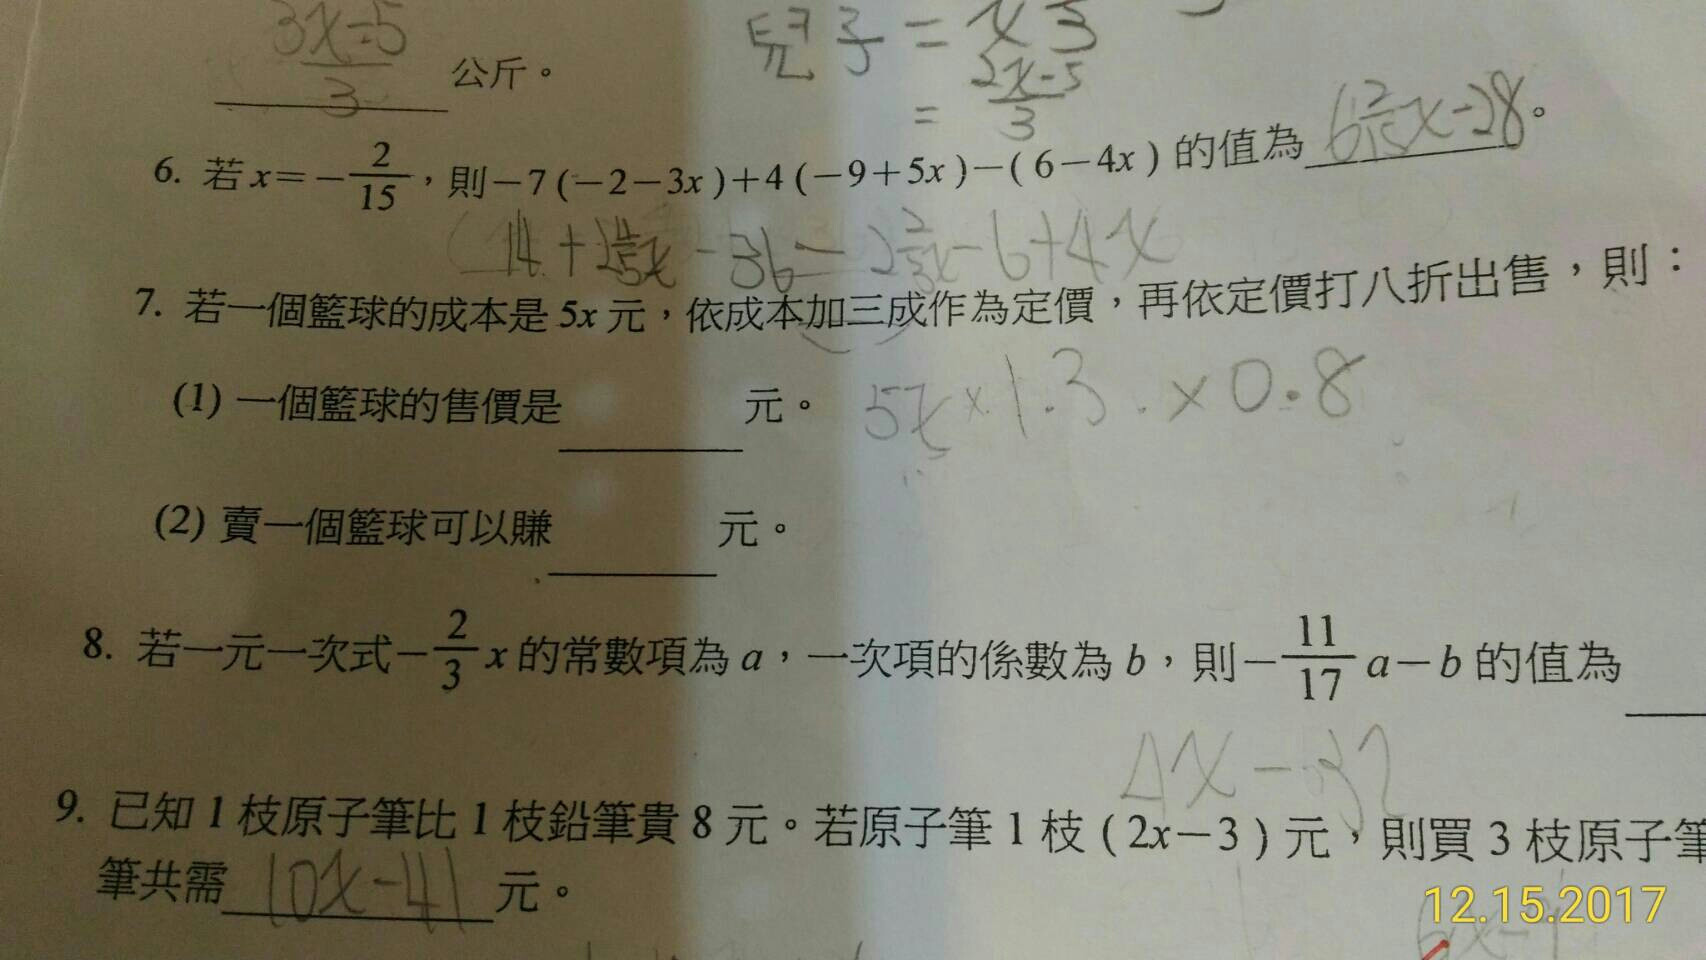 3x-5
3
公斤。
兒子 = x
= 2x-5
3
6. 若 x=-2/15，則-7(-2-3x)+4(-9+5x)-(6-4x)的值為 x-28。
14+ x-36- x-6+4x
7. 若一個籃球的成本是 5x 元，依成本加三成作為定價，再依定價打八折出售，則：
(1) 一個籃球的售價是 元。 5x×1.3.×0.8
(2) 賣一個籃球可以賺 元。
8. 若一元一次式-2/3 x 的常數項為 a，一次項的係數為 b，則-11/17 a-b 的值為
4x-32
9. 已知 1 枝原子筆比 1 枝鉛筆貴 8 元。若原子筆 1 枝(2x-3)元，則買 3 枝原子筆
筆共需 10x-41 元。
12.15.2017